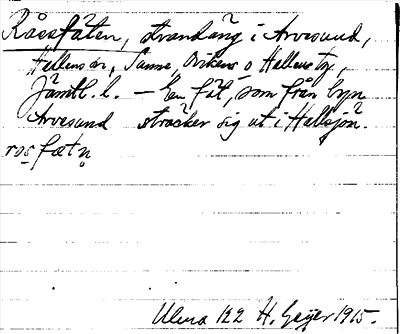 Råssfäten, strandäng i Arvesund,
Hallens sn, Sunne, Ovikens o Hallens tg,
Jämtl. l. — En fit, som från byn
Arvesund sträcker sig ut i Hallsjön.
ros fætn
Ulma 122 H. Geijer 1915.